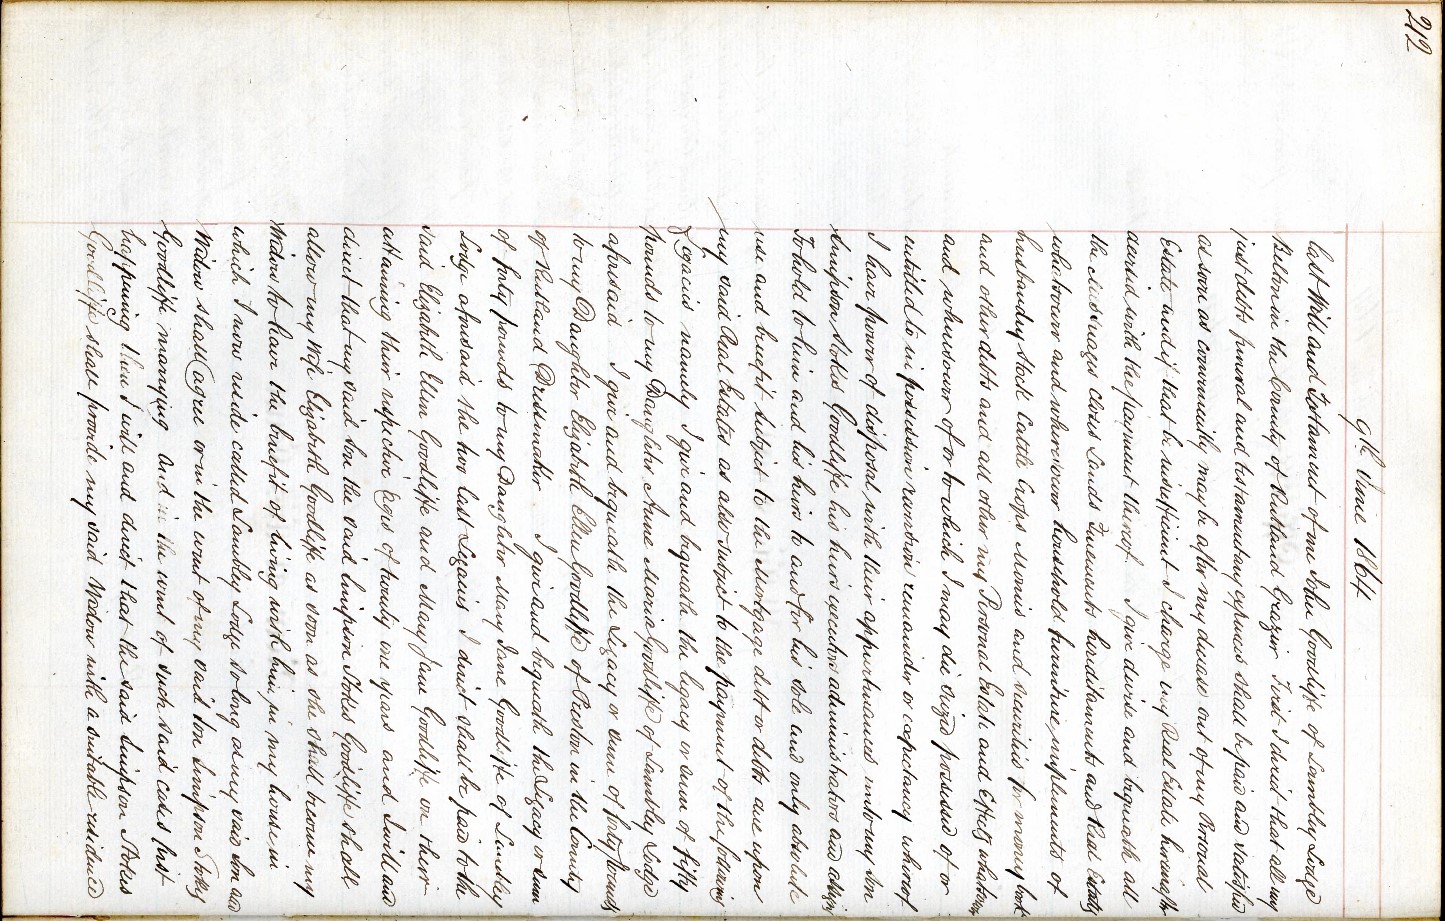 212
9th June 1864
last Will and Testament of me John Goodliffe of Lambley Lodge
Belton in the County of Rutland Grazier First I direct that all my
just debts funeral and testamentary expenses shall be paid and satisfied
as soon as conveniently may be after my decease out of my Personal
Estate and if that be insufficient I charge my Real Estate hereinafter
devised with the payment thereof I give devise and bequeath all
the messuages closes Lands Tenements hereditaments and Real Estate
whatsoever and wheresoever household furniture implements of
husbandry stock Cattle Crops Monies and securities for money book
and other debts and all other my Personal Estate and Effects whatsoever
and whensoever of or to which I may die seized possessed of or
entitled to in possession reversion remainder or expectancy whereof
I have power of disposal with their appurtenances unto my Son
Simpson Stokes Goodliffe his heirs executors administrators and assigns
To hold to him and his heirs to and for his sole and only absolute
use and benefit subject to the Mortgage debt or debts due upon
my said Real Estates as also subject to the payment of the following
Legacies namely I give and bequeath the legacy or sum of fifty
pounds to my Daughter Anne Maria Goodliffe of Lambley Lodge
aforesaid I give and bequeath the Legacy or sum of forty pounds
to my Daughter Elizabeth Ellen Goodliffe of Preston in the County
of Rutland Dressmaker I give and bequeath the Legacy or sum
of forty pounds to my Daughter Mary Jane Goodliffe of Lambley
Lodge aforesaid the two last Legacies I direct shall be paid to the
said Elizabeth Ellen Goodliffe and Mary Jane Goodliffe on their
attaining their respective Ages of twenty one years and I will and
direct that my said Son the said Simpson Stokes Goodliffe shall
allow my Wife Elizabeth Goodliffe as soon as she shall become my
Widow to have the benefit of living with him in my house in
which I now reside called Lambley Lodge so long as my said Son and
Widow shall agree or in the event of my said Son Simpson Stokes
Goodliffe marrying and in the event of such said cases first
happening then I will and direct that the said Simpson Stokes
Goodliffe shall provide my said Widow with a suitable residence